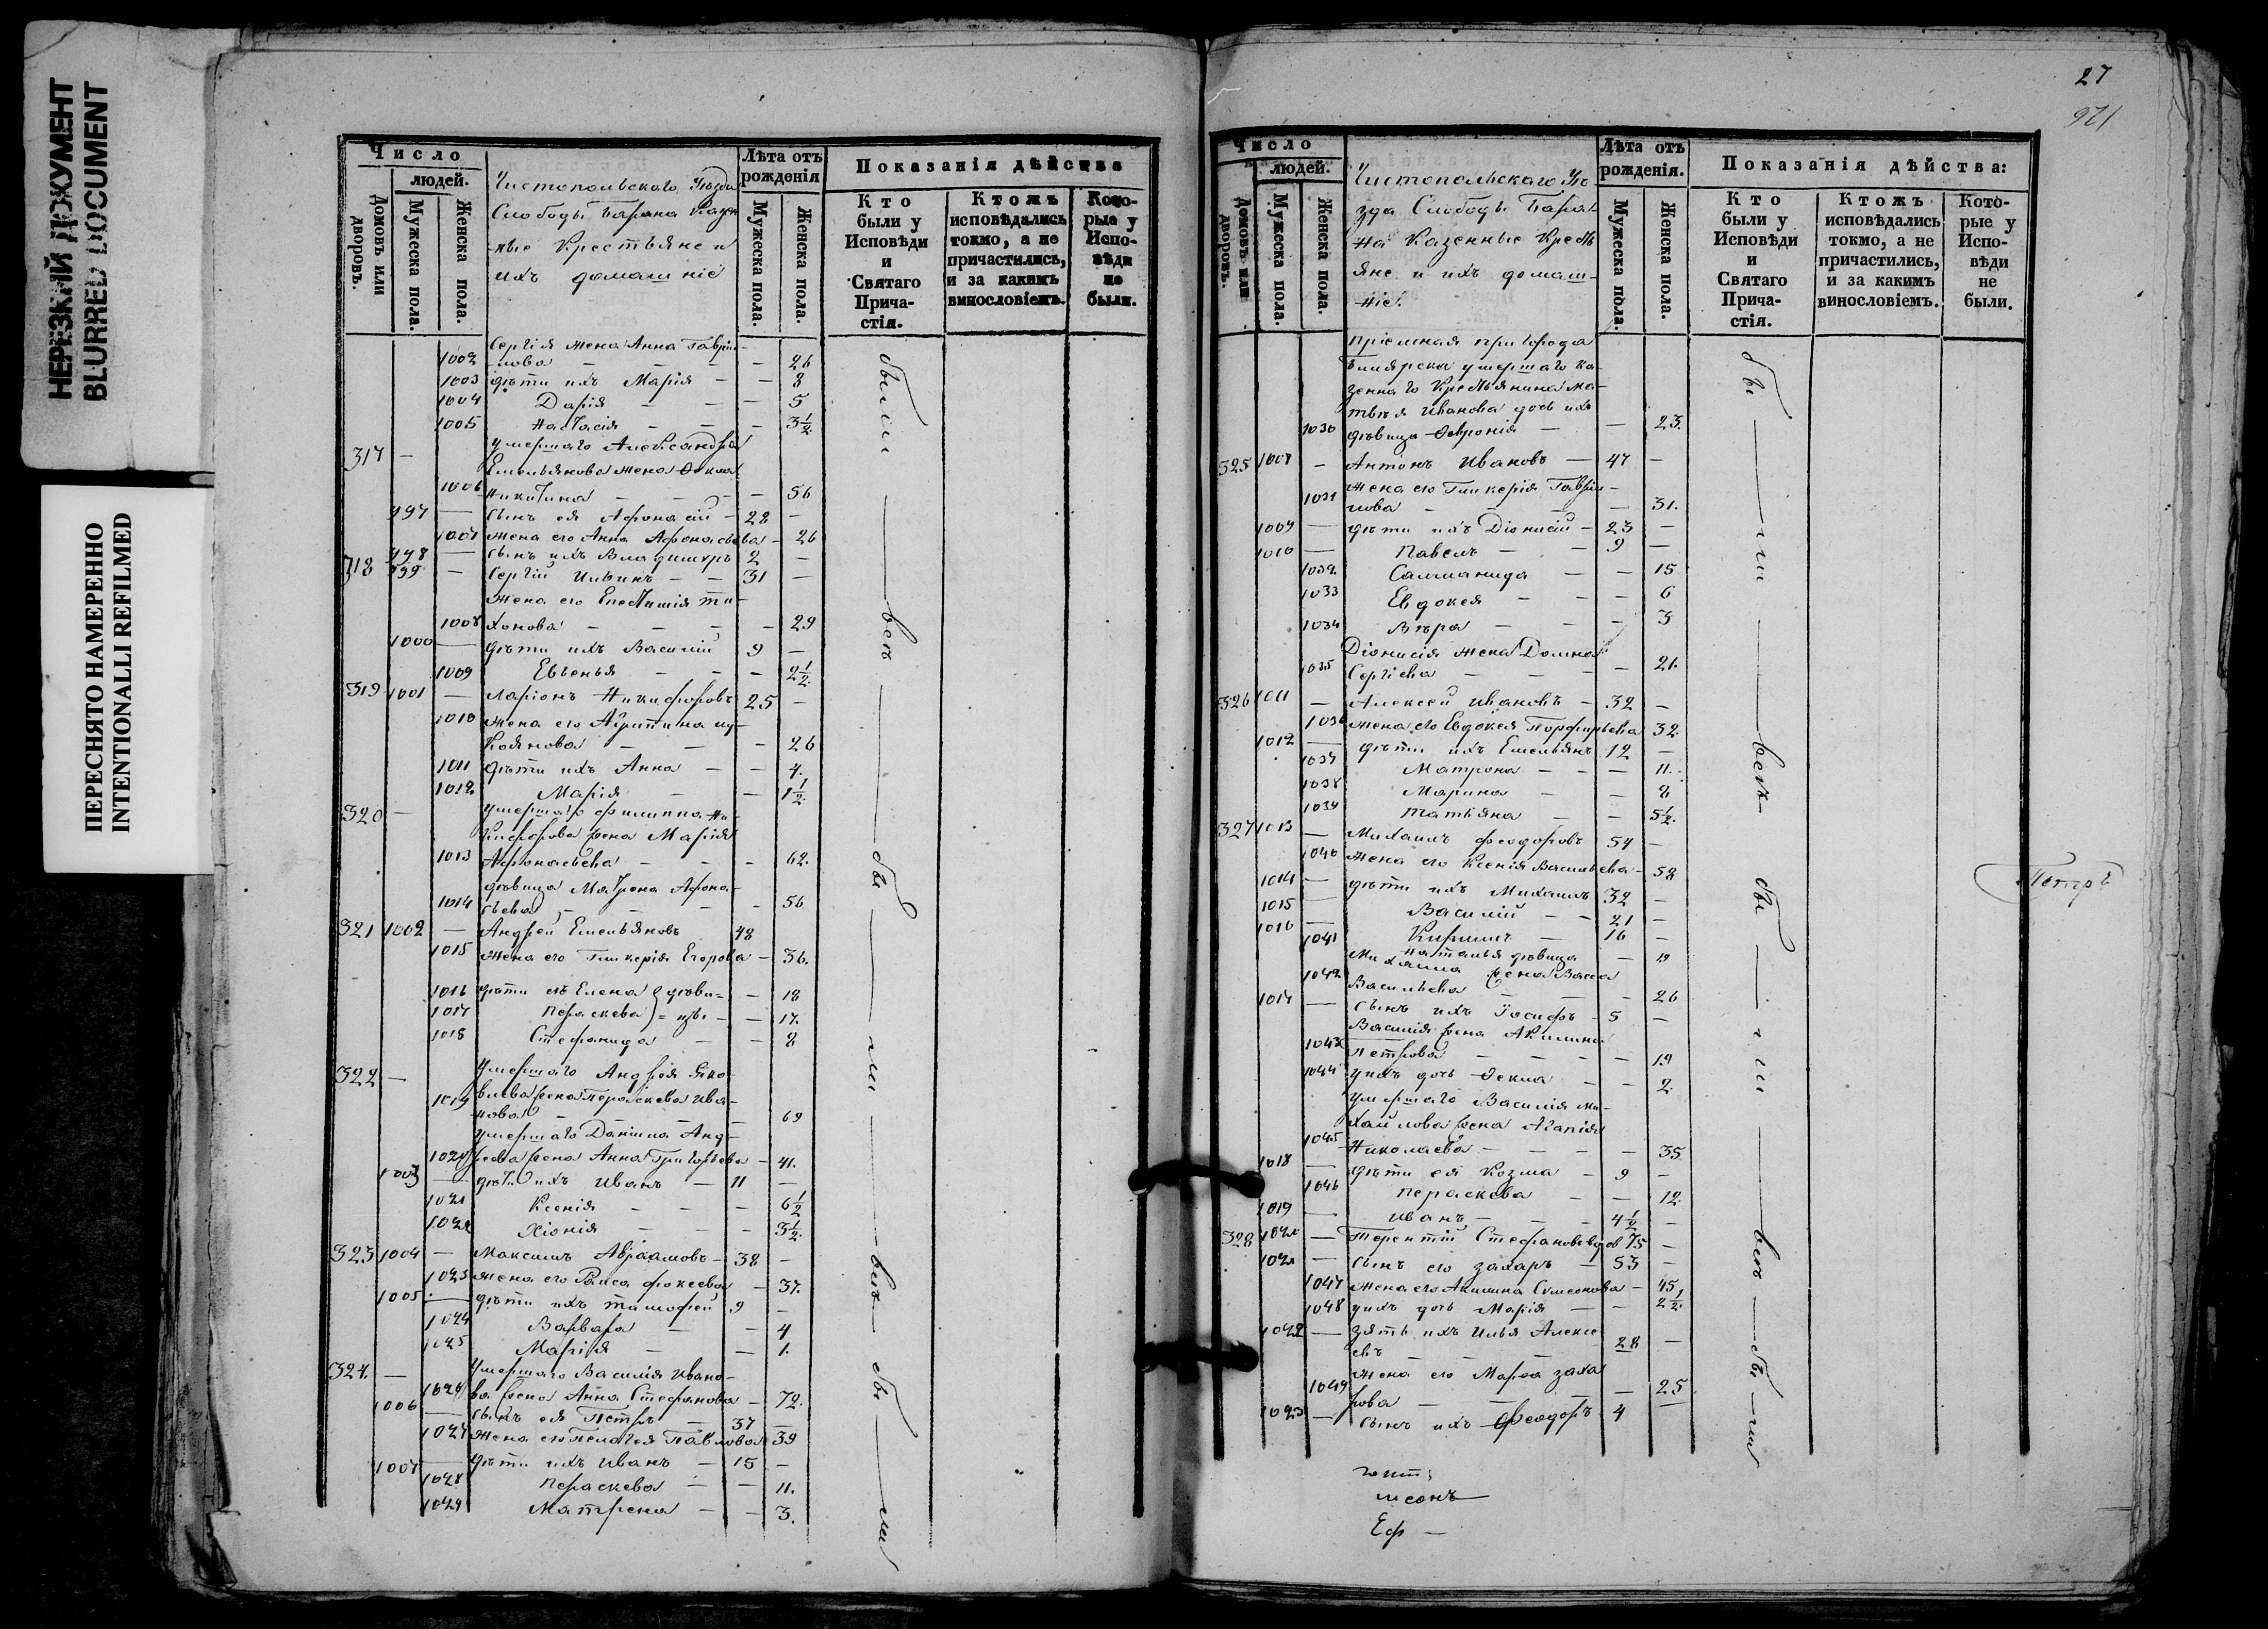 НЕРЕЗКИЙ ДОКУМЕНТ
BLURRED DOCUMENT
ПЕРЕСНЯТО НАМЕРЕННО
INTENTIONALLI REFILMED
Число
людей.
Домовъ или дворовъ.
Мужеска пола.
Женска пола.
Чистопольскаго Уѣзда
Слободы Барана Казен
ные Крестьяне и
ихъ домашніе
Лѣта отъ рожденія
Мужеска пола.
Женска пола.
Показанія дѣйства
Кто были у Исповѣди и Святаго Причастія.
Ктожъ исповѣдались токмо, а не причастились, и за какимъ винословіемъ.
Которые у Исповѣди не были.
Сергія жена Анна Гаври-
1002 лова — — 26
1003 дѣти ихъ Марія — — 8
1004 Дарія — — 5
1005 Настасія — — 3½
317 — умершаго Александра
Емельянова жена Ѳекла
1006 Никитина — — 56
997 — сынъ ея Афонасій — 22 —
1007 жена его Анна Афонасьева — 26
998 — сынъ ихъ Владимиръ 2 —
318 999 — Сергій Ильинъ — 31 —
жена его Епестимія Ти-
1008 хонова — — 29
1000 — дѣти ихъ Василій 9 —
1009 Евгенья — — 2½
319 1001 — Ларіонъ Никифоровъ 25 —
1010 жена его Агрипина Лу-
коянова — — 26
1011 дѣти ихъ Анна — — 4.
1012 Марія — 1½
320 — умершаго Филиппа Ни-
кифорова жена Марія
1013 Афонасьева — — 62.
дѣвица Матрена Афона-
1014 сьева — — 56
321 1002 — Андрей Емельяновъ 48
1015 жена его Гликерія Егорова — 36.
1016 дѣти ихъ Елена } дѣви= — 18
1017 Пераскева } = цы — — 17.
1018 Стефанида — — 8
322 — умершаго Андрея Яко-
1019 влева жена Пераскева Ива-
нова — — 69
умершаго Даніила Анд-
1020 реева жена Анна Григорьева — 41.
1003 — дѣти ихъ Иванъ — 11 —
1021 Ксенія — — 6½
1022 Хіонія — — 3½.
323 1004 — Максимъ Авраамовъ — 38 —
1023 жена его Раиса Фокеева — 37.
1005 — дѣти ихъ Тимофей 9 —
1024 Варвара — — 4
1025 Марія — — 1.
324. — умершаго Василія Ивано-
1026 ва жена Анна Стефанова — 72.
1006 — сынъ ея Петръ — 37 —
1027 жена его Пелагея Павлова 39
1007 — дѣти ихъ Иванъ — 15 —
1028 Пераскева — — 11.
1029 Матрена — — 3.
были всѣ были всѣ были
27
921
Число
людей.
Домовъ или дворовъ.
Мужеска пола.
Женска пола.
Чистопольскаго Уѣ-
зда Слободы Бара-
на Казенные Кресть
яне и ихъ домаш-
ніе.
Лѣта отъ рожденія.
Мужеска пола.
Женска пола.
Показанія дѣйства:
Кто были у Исповѣди и Святаго Причастія.
Ктожъ исповѣдались токмо, а не причастились, и за какимъ винословіемъ.
Которые у Исповѣди не были.
Пріемная пригорода
Билярска умершаго Ка-
зеннаго Крестьянина Ма-
твѣя Иванова дочь ихъ
1030 дѣвица Ѳеѵронія — — 23.
325 1008 — Антонъ Ивановъ — 47 —
1031 жена его Гликерія Гаври-
лова — — 31.
1009 — дѣти ихъ Діонисій — 23 —
1010 — Павелъ — — 9 —
1032 Саломанида — — 15
1033 Евдокея — — 6
1034 Вѣра — — 3
Діонисія жена Домна
1035 Сергіева — — 21.
326 1011 — Алексей Ивановъ — 32 —
1036 жена его Евдокея Порфирьева 32.
1012 — дѣти ихъ Емельянъ 12 —
1037 Матрона — — 11.
1038 Марина — — 8
1039 Татьяна — — 5½.
327 1013 — Михаилъ Феодоровъ 54 —
1040 жена его Ксенія Васильева — 58
1014 — дѣти ихъ Михаилъ 32 —
1015 — Василій — — 21 —
1016 — Кирилъ — 16 —
1041 Наталья дѣвица — 19
Михаила жена Васса
1042 Васильева — — 26
1017 — сынъ ихъ Іосифъ — 5 —
Василія жена Акилина
1043 Петрова — — 19
1044 у ихъ дочь Ѳекла — — 2.
умершаго Василія Ми-
хайлова жена Агапія
1045 Николаева — — 35
1018 — дѣти ея Козма — 9 —
1046 Пераскева — — 12.
1019 — Иванъ — — 4½ —
328 1020 — Терентій Стефановъ вдов 75 —
1021 — сынъ его Захаръ — 53 —
1047 жена его Акилина Симеонова — 45
1048 у ихъ дочь Марія — — 2½.
1022 — зять ихъ Илья Алексе
евъ — — 28 —
жена его Марѳа Заха
1049 рова — — 25
1023 — сынъ ихъ Феодоръ 4 —
были всѣ были всѣ были
Петръ
Еф —